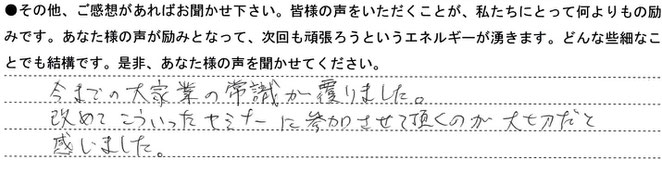 ●その他、ご感想があればお聞かせ下さい。皆様の声をいただくことが、私たちにとって何よりもの励
みです。あなた様の声が励みとなって、次回も頑張ろうというエネルギーが湧きます。どんな些細なこ
とでも結構です。是非、あなた様の声を聞かせてください。
今までの大家業の常識が覆りました。
改めてこういったセミナーに参加させて頂くのが大切だと
感じました。